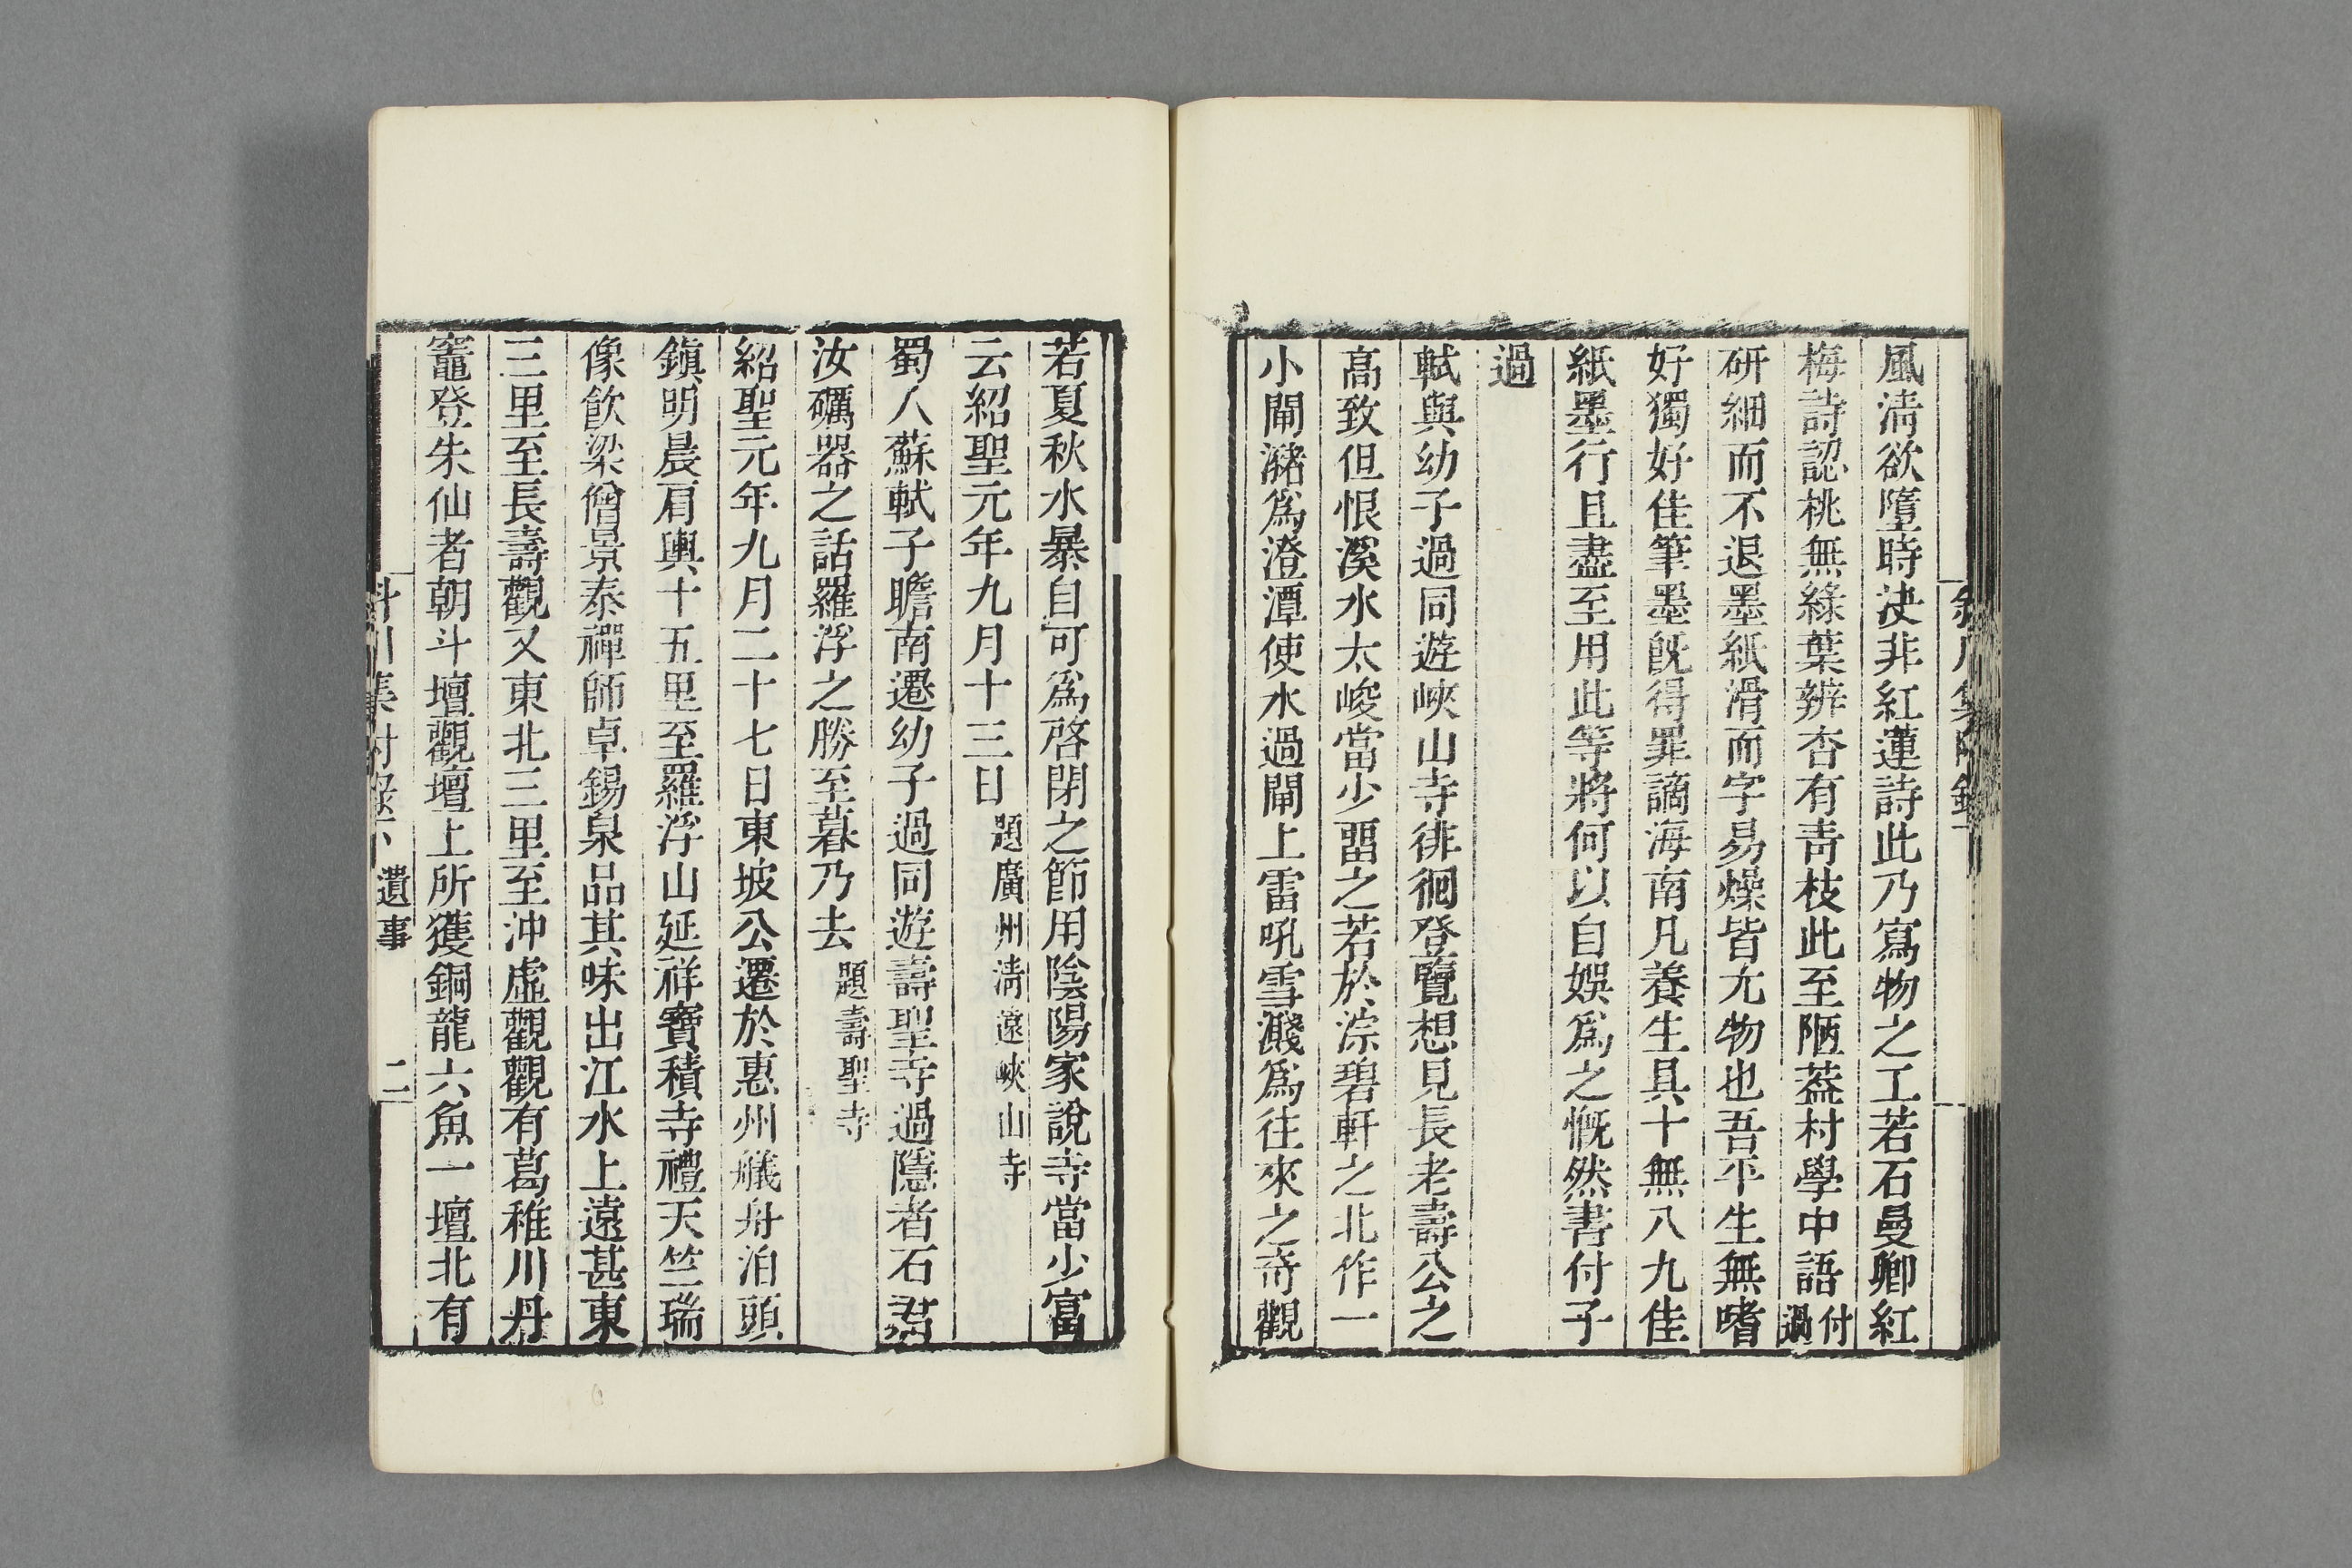 風淸欲墮時決非紅蓮詩此乃寫物之工若石曼卿紅
梅詩認桃無綠葉辨杏有靑枝此至陋葢村學中語付過
硏細而不退墨紙滑而字易燥皆尤物也吾平生無嗜
好獨好佳筆墨旣得罪謫海南凡養生具十無八九佳
紙墨行且盡至用此等將何以自娛爲之慨然書付子
過
軾與幼子過同遊峽山寺徘徊登覽想見長老壽公之
高致但恨溪水太峻當少畱之若於淙碧軒之北作一
小閘瀦爲澄潭使水過閘上雷吼雪濺爲往來之奇觀
若夏秋水暴自可爲啓閉之節用陰陽家說寺當少富
云紹聖元年九月十三日題廣州淸遠峽山寺
蜀人蘇軾子瞻南遷幼子過同遊壽聖寺過隱者石君
汝礪器之話羅浮之勝至暮乃去題壽聖寺
紹聖元年九月二十七日東坡公遷於惠州艤舟泊頭
鎭明晨肩輿十五里至羅浮山延祥寶積寺禮天竺瑞
像飮梁僧景泰禪師卓錫泉品其味出江水上遠甚東
三里至長壽觀又東北三里至沖虛觀觀有葛稚川丹
竈登朱仙者朝斗壇觀壇上所獲銅龍六魚一壇北有
斜川集附錄下 遺事 二